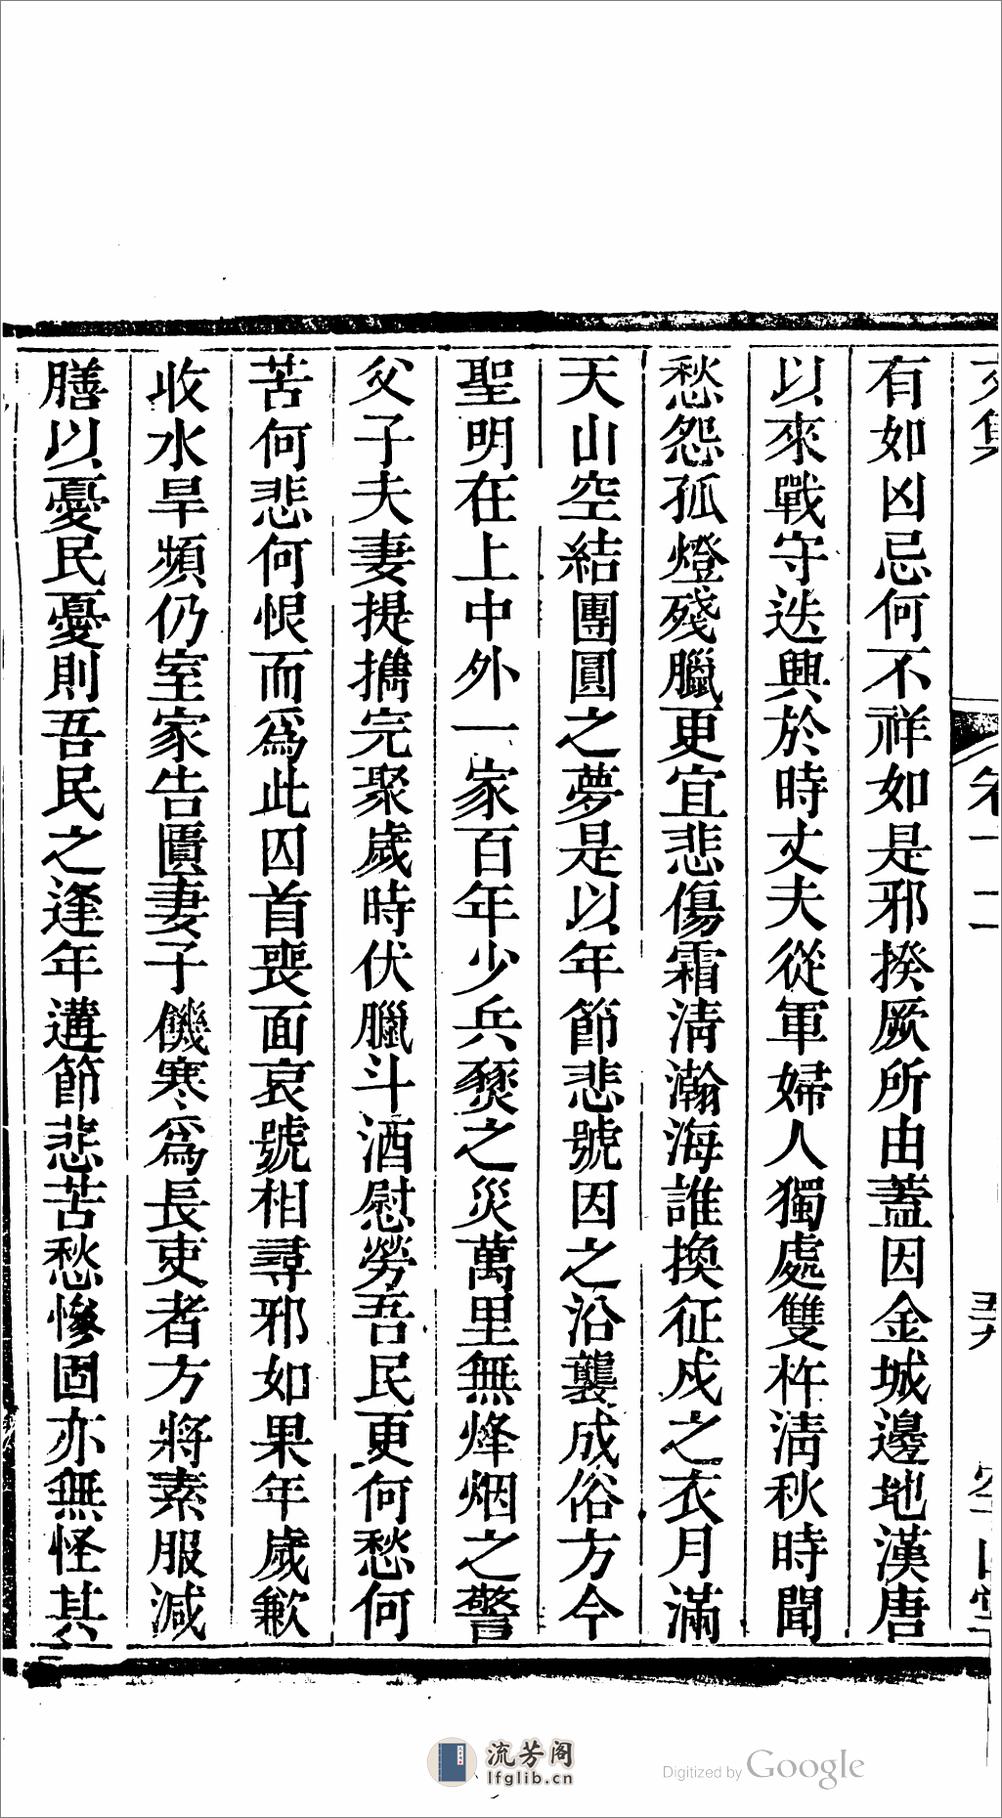 有如凶忌何不祥如是邪揆厥所由蓋因金城邊地漢唐
以來戰守迭興於時丈夫從軍婦人獨處雙杵清秋時聞
愁怨孤燈殘臘更宜悲傷霜清瀚海誰換征戍之衣月滿
天山空結團圓之夢是以年節悲號因之沿襲成俗方今
聖明在上中外一家百年少兵燹之災萬里無烽烟之警
父子夫妻提擕完聚歲時伏臘斗酒慰勞吾民更何愁何
苦何悲何恨而爲此囚首喪面哀號相尋邪如果年歲歉
收水旱頻仍室家告匱妻子饑寒爲長吏者方將素服減
膳以憂民憂則吾民之逢年遘節悲苦愁慘固亦無怪其
文集
卷十二
五九
流芳阁
lfglib.cn
Digitized by Google